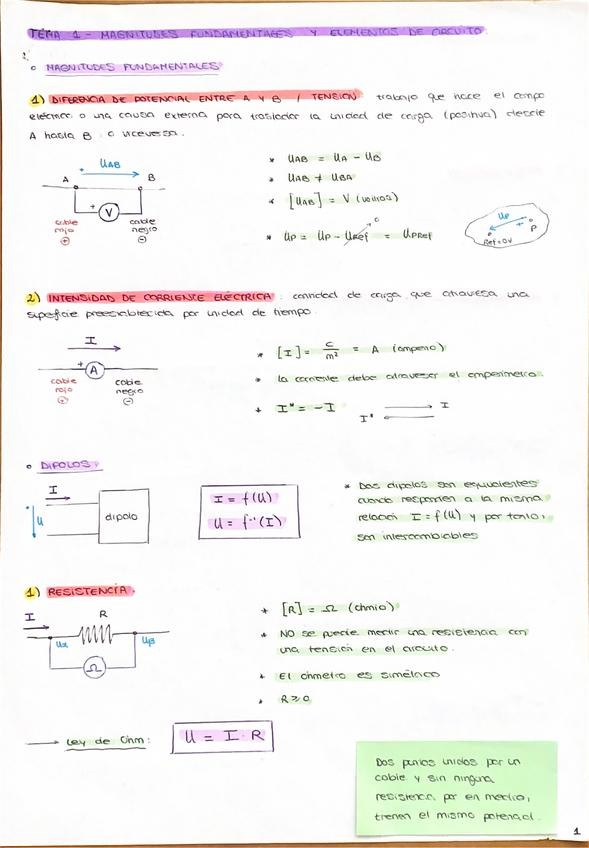 TEMA 1 - MAGNITUDES FUNDAMENTALES Y ELEMENTOS DE CIRCUITO.
○ MAGNITUDES FUNDAMENTALES
1) DIFERENCIA DE POTENCIAL ENTRE A Y B / TENSIÓN: trabajo que hace el campo
eléctrico o una causa externa para trasladar la unidad de carga (positiva) desde
A hasta B o viceversa.
UAB
A B
+ V
cable rojo ⊕
cable negro ⊖
* UAB = UA - UB
* UAB ≠ UBA
* [UAB] = V (voltios)
* UP = UP - URef = UPRef
0
UP
+
P
Ref=0V
2) INTENSIDAD DE CORRIENTE ELÉCTRICA: cantidad de carga que atraviesa una
superficie preestablecida por unidad de tiempo.
I
+ A
cable rojo ⊕
cable negro ⊖
* [I] = C/m² = A (amperio)
* La corriente debe atravesar el amperímetro.
* I* = -I
I
I*
○ DIPOLOS:
I
U
dipolo
I = f(U)
U = f⁻¹(I)
* Dos dipolos son equivalentes
cuando responden a la misma
relación I = f(U) y por tanto,
son intercambiables
1) RESISTENCIA.
I
R
Uα Uβ
Ω
* [R] = Ω (ohmio)
* NO se puede medir una resistencia con
una tensión en el circuito.
* El óhmetro es simétrico
* R ≥ 0
→ Ley de Ohm:
U = I · R
Dos puntos unidos por un
cable y sin ninguna
resistencia por en medio,
tienen el mismo potencial.
1